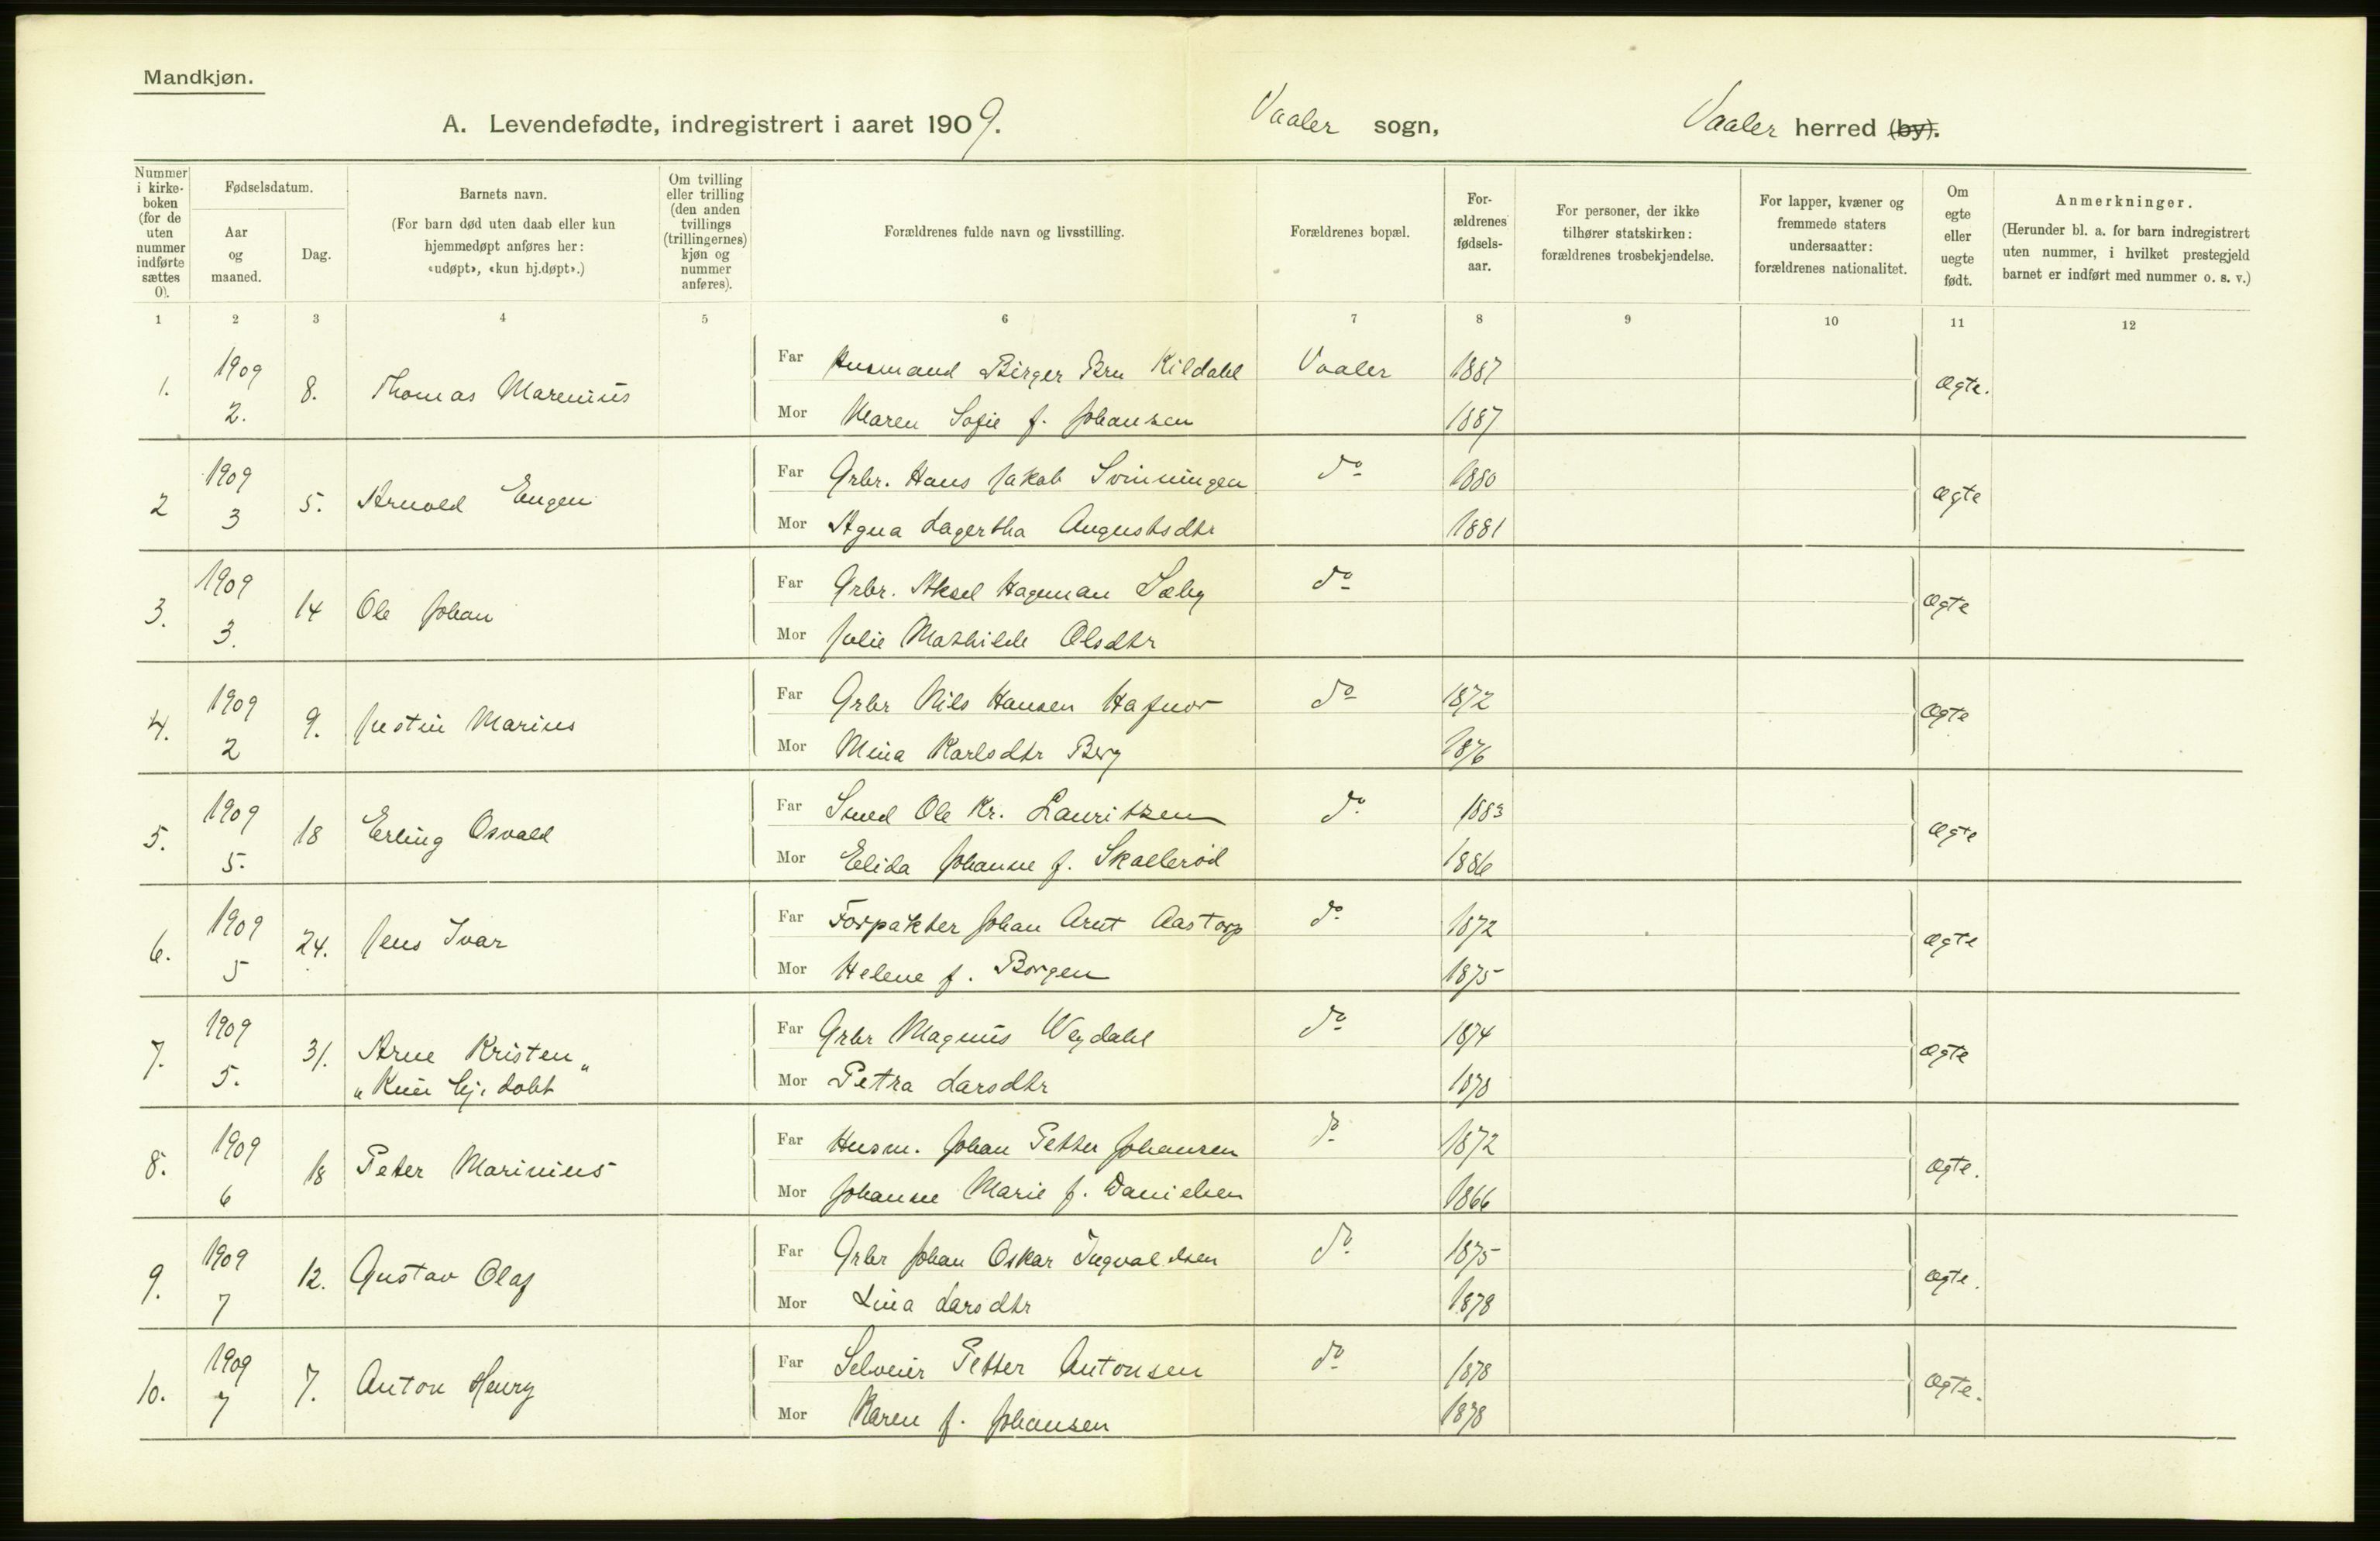 Mandkjøn.
A. Levendefødte, indregistrert i aaret 1909. Vaaler sogn, Vaaler herred (by).
Nummer i kirkeboken (for de uten nummer indførte sættes 0).
Fødselsdatum.
Aar og maaned.
Dag.
Barnets navn.
(For barn død uten daab eller kun hjemmedøpt anføres her: «udøpt», «kun hj.døpt».)
Om tvilling eller trilling (den anden tvillings (trillingernes) kjøn og nummer anføres).
Forældrenes fulde navn og livsstilling.
Forældrenes bopæl.
Forældrenes fødselsaar.
For personer, der ikke tilhører statskirken: forældrenes trosbekjendelse.
For lapper, kvæner og fremmede staters undersaatter: forældrenes nationalitet.
Om egte eller uegte født.
Anmerkninger.
(Herunder bl. a. for barn indregistrert uten nummer, i hvilket prestegjeld barnet er indført med nummer o. s. v.)
1 2 3 4 5 6 7 8 9 10 11 12
1. 1909 2. 8. Thomas Marenius
Far Husmand Birger Bru Kildahl Vaaler 1887 Ægte.
Mor Maren Sofie f. Johansen 1887
2 1909 3 5. Arnold Eugen
Far Grbr. Hans Jakob Svinningen do 1880 Ægte
Mor Agna Lagertha Augustsdtr 1881
3. 1909 3. 14 Ole Johan
Far Grbr. Aksel Hagman Sæby do Ægte
Mor Julie Mathilde Olsdtr
4. 1909 2 9. Justin Marius
Far Grbr Nils Hansen Hafnor do 1872 Ægte
Mor Mina Karlsdtr Berg 1876
5. 1909 5. 18 Erling Osvald
Far Smed Ole Kr. Lauritzen do 1883 Ægte
Mor Elida Johanne f. Skallerød 1886
6. 1909 5 24. Jens Ivar
Far Forpakter Johan Arnt Aastorp do 1872 Ægte
Mor Helene f. Borgen 1875
7. 1909 5. 31. Arne Kristen
"Kun hj. døbt"
Far Grbr Magnus Weydahl do 1874 Ægte
Mor Petra Larsdtr 1878
8. 1909 6 18 Peter Marinius
Far Husm. Johan Petter Johansen do 1872 Ægte.
Mor Johanne Marie f. Danielsen 1866
9. 1909 7 12. Gustav Olaf
Far Grbr Johan Oskar Ingvaldsen do 1875 Ægte.
Mor Lina Larsdtr 1878
10. 1909 7 7. Anton Henry
Far Selveier Petter Antonsen do 1878 Ægte.
Mor Karen f. Johansen 1878